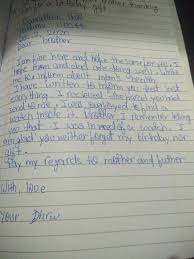 for a birthday gift
Dear brother
I am fine here and hope the same for you. I
hope mom and dad are doing well. Write
me to inform about mom's health.
I have written to inform you that not
everything I received the parcel you had
send to me. I was surprised to find a
watch inside it. Brother, I remember telling
you that I was in need of a watch. I
am glad you neither forgot my birthday nor
gift.
Pay my regards to mother and father
With love
Your Dhriv